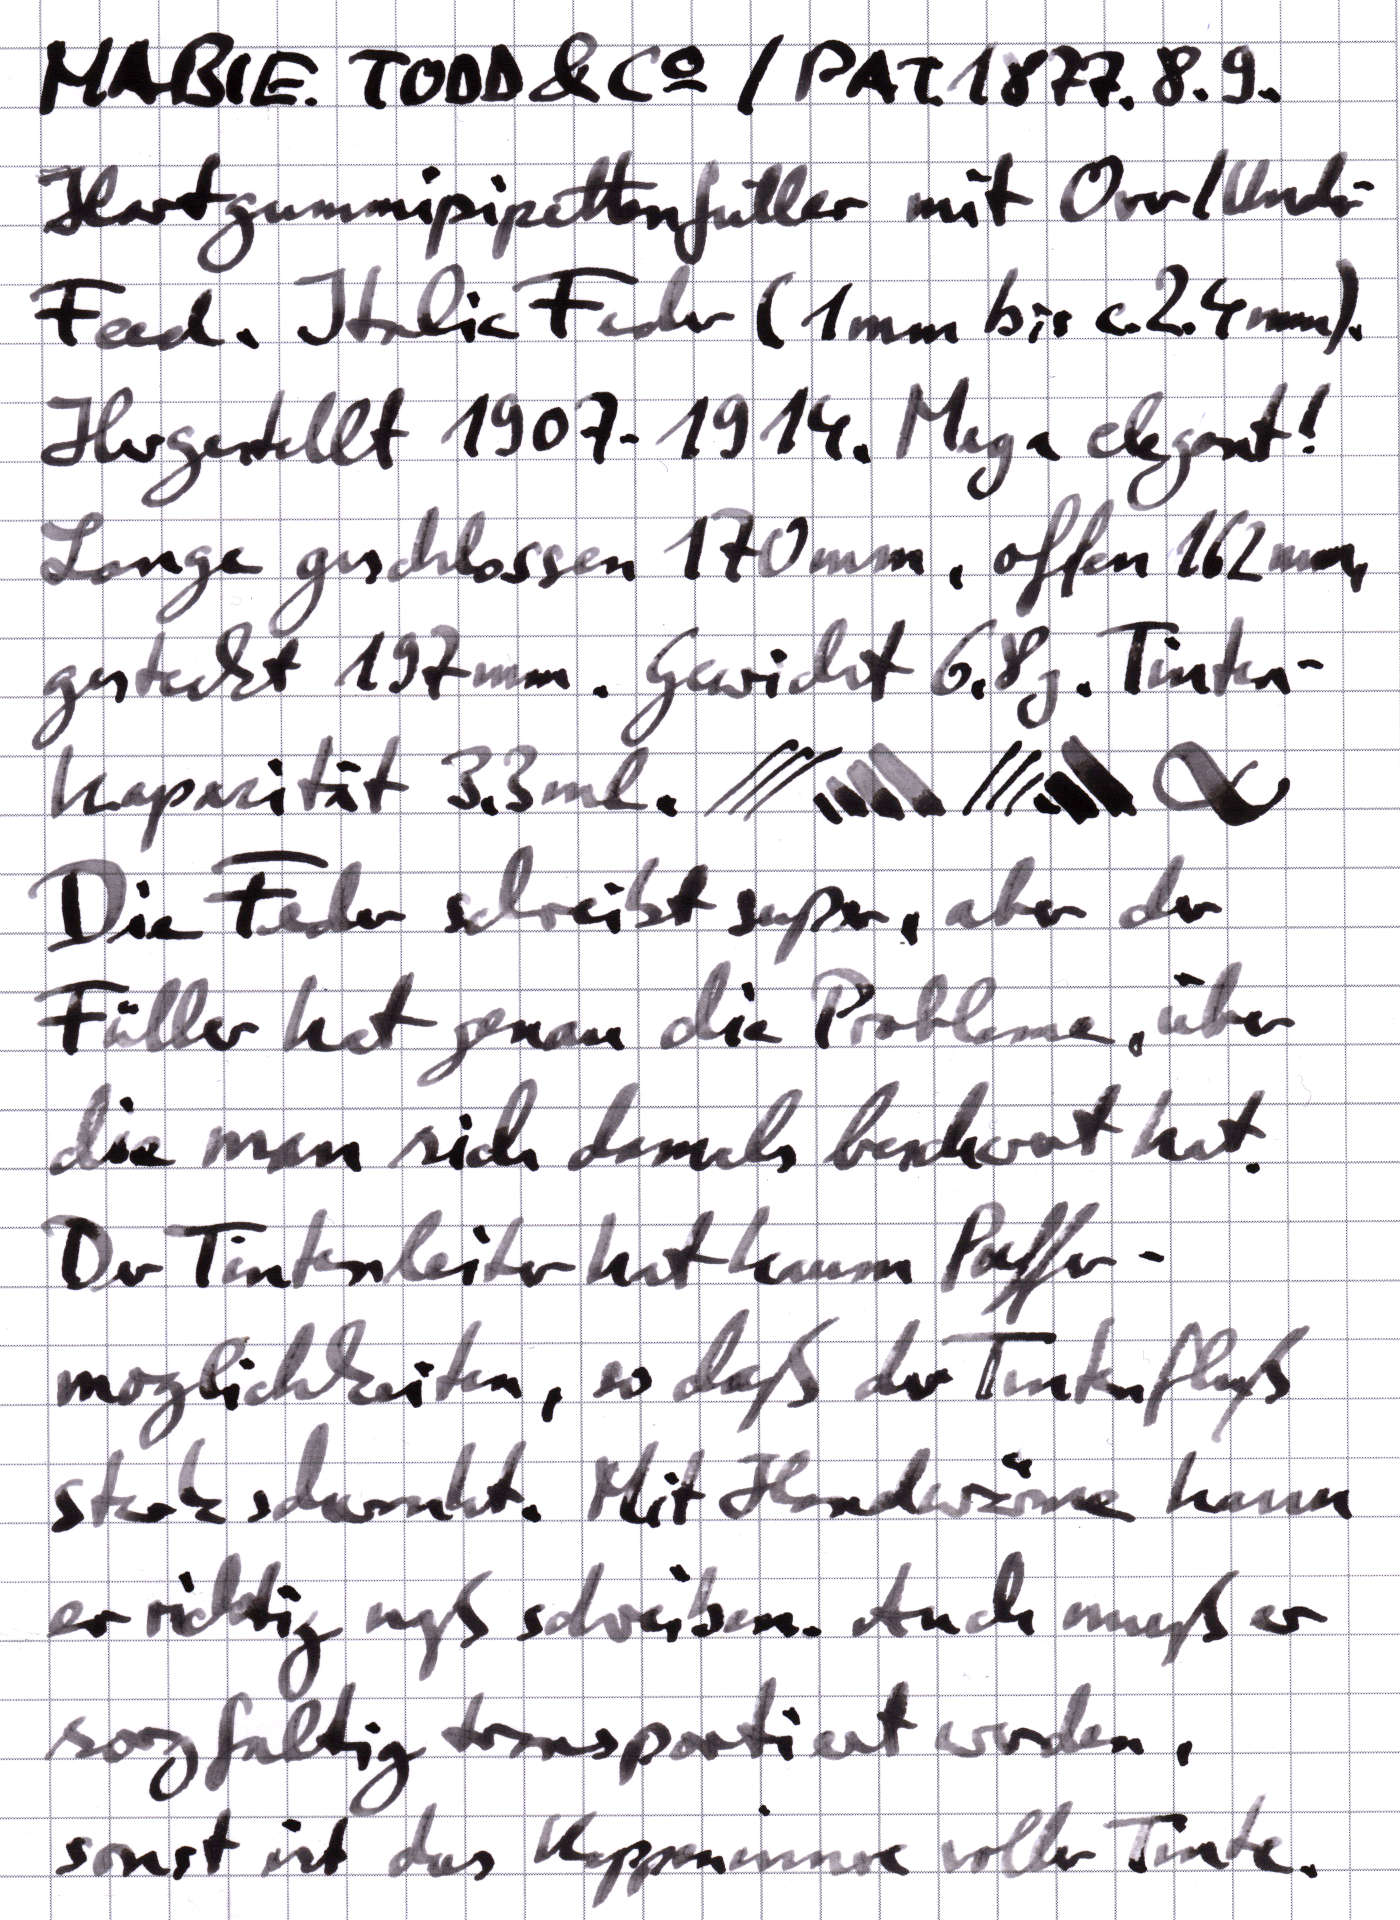 MABIE. TODD & Cº / PAT. 1877. 8. 9.
Hartgummipipettenfüller mit Over/Under-
Feed. Italic Feder (1mm bis c. 2.4mm).
Hergestellt 1907-1914. Mega elegant!
Länge geschlossen 170mm, offen 162mm,
gesteckt 197mm. Gewicht 6.8g. Tinten-
kapazität 3.3ml.
Die Feder schreibt super, aber der
Füller hat genau die Probleme, über
die man sich damals beschwert hat.
Der Tintenleiter hat kaum Puffer-
möglichkeiten, so daß der Tintenfluß
stark schwankt. Mit Handwärme kann
er richtig naß schreiben. Auch muß er
sorgfältig transportiert werden,
sonst ist das Kappeninnere voller Tinte.